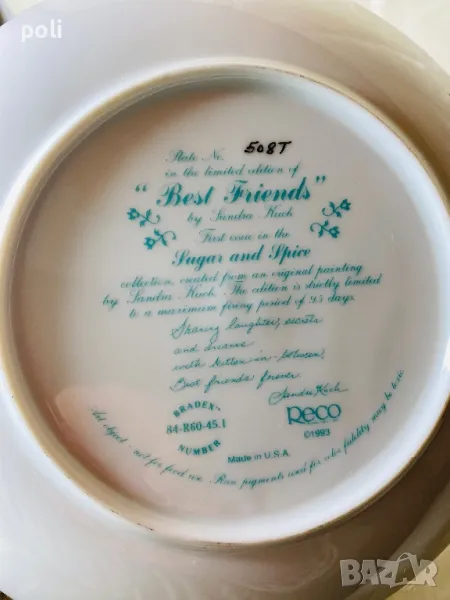 poli
Plate No. 508T
in the limited edition of
"Best Friends"
by Sandra Kuck
First issue in the
Sugar and Spice
collection, created from an original painting
by Sandra Kuck. The edition is strictly limited
to a maximum firing period of 95 days.
Sharing laughter, secrets
and dreams
with kitten in-between,
Best friends forever.
Sandra Kuck
BRADEX™
84-R60-45.1
NUMBER
Reco
©1993
Made in U.S.A.
Art object - not for food use. Rare pigments used for color fidelity may be toxic.
BAZAR